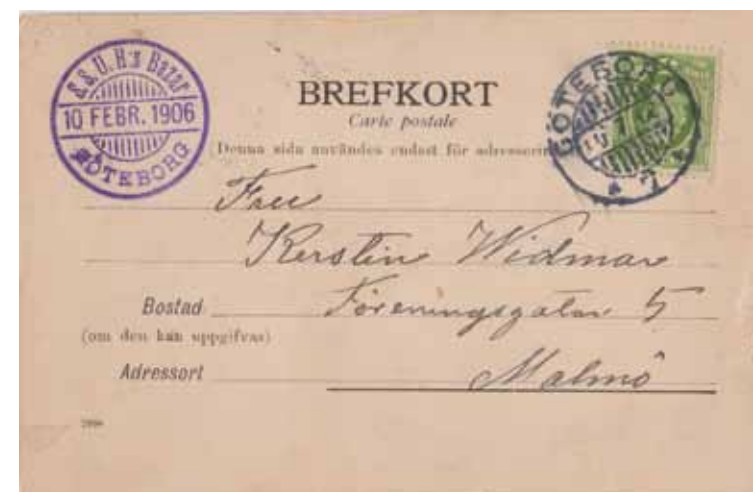 S.S.U.H:s Bazar
10 FEBR. 1906
GÖTEBORG
BREFKORT
Carte postale
(Denna sida användes endast för adressering
GÖTEBORG
Kerstin Widmar
Bostad Föreningsgatan 5
(om den kan uppgifvas)
Adressort Malmö